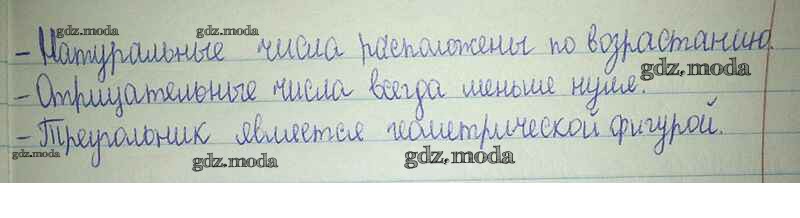 gdz.moda gdz.moda gdz.moda
- Натуральные числа расположены по возрастанию.
gdz.moda
- Отрицательные числа всегда меньше нуля.
gdz.moda
- Треугольник является геометрической фигурой.
gdz.moda gdz.moda gdz.moda